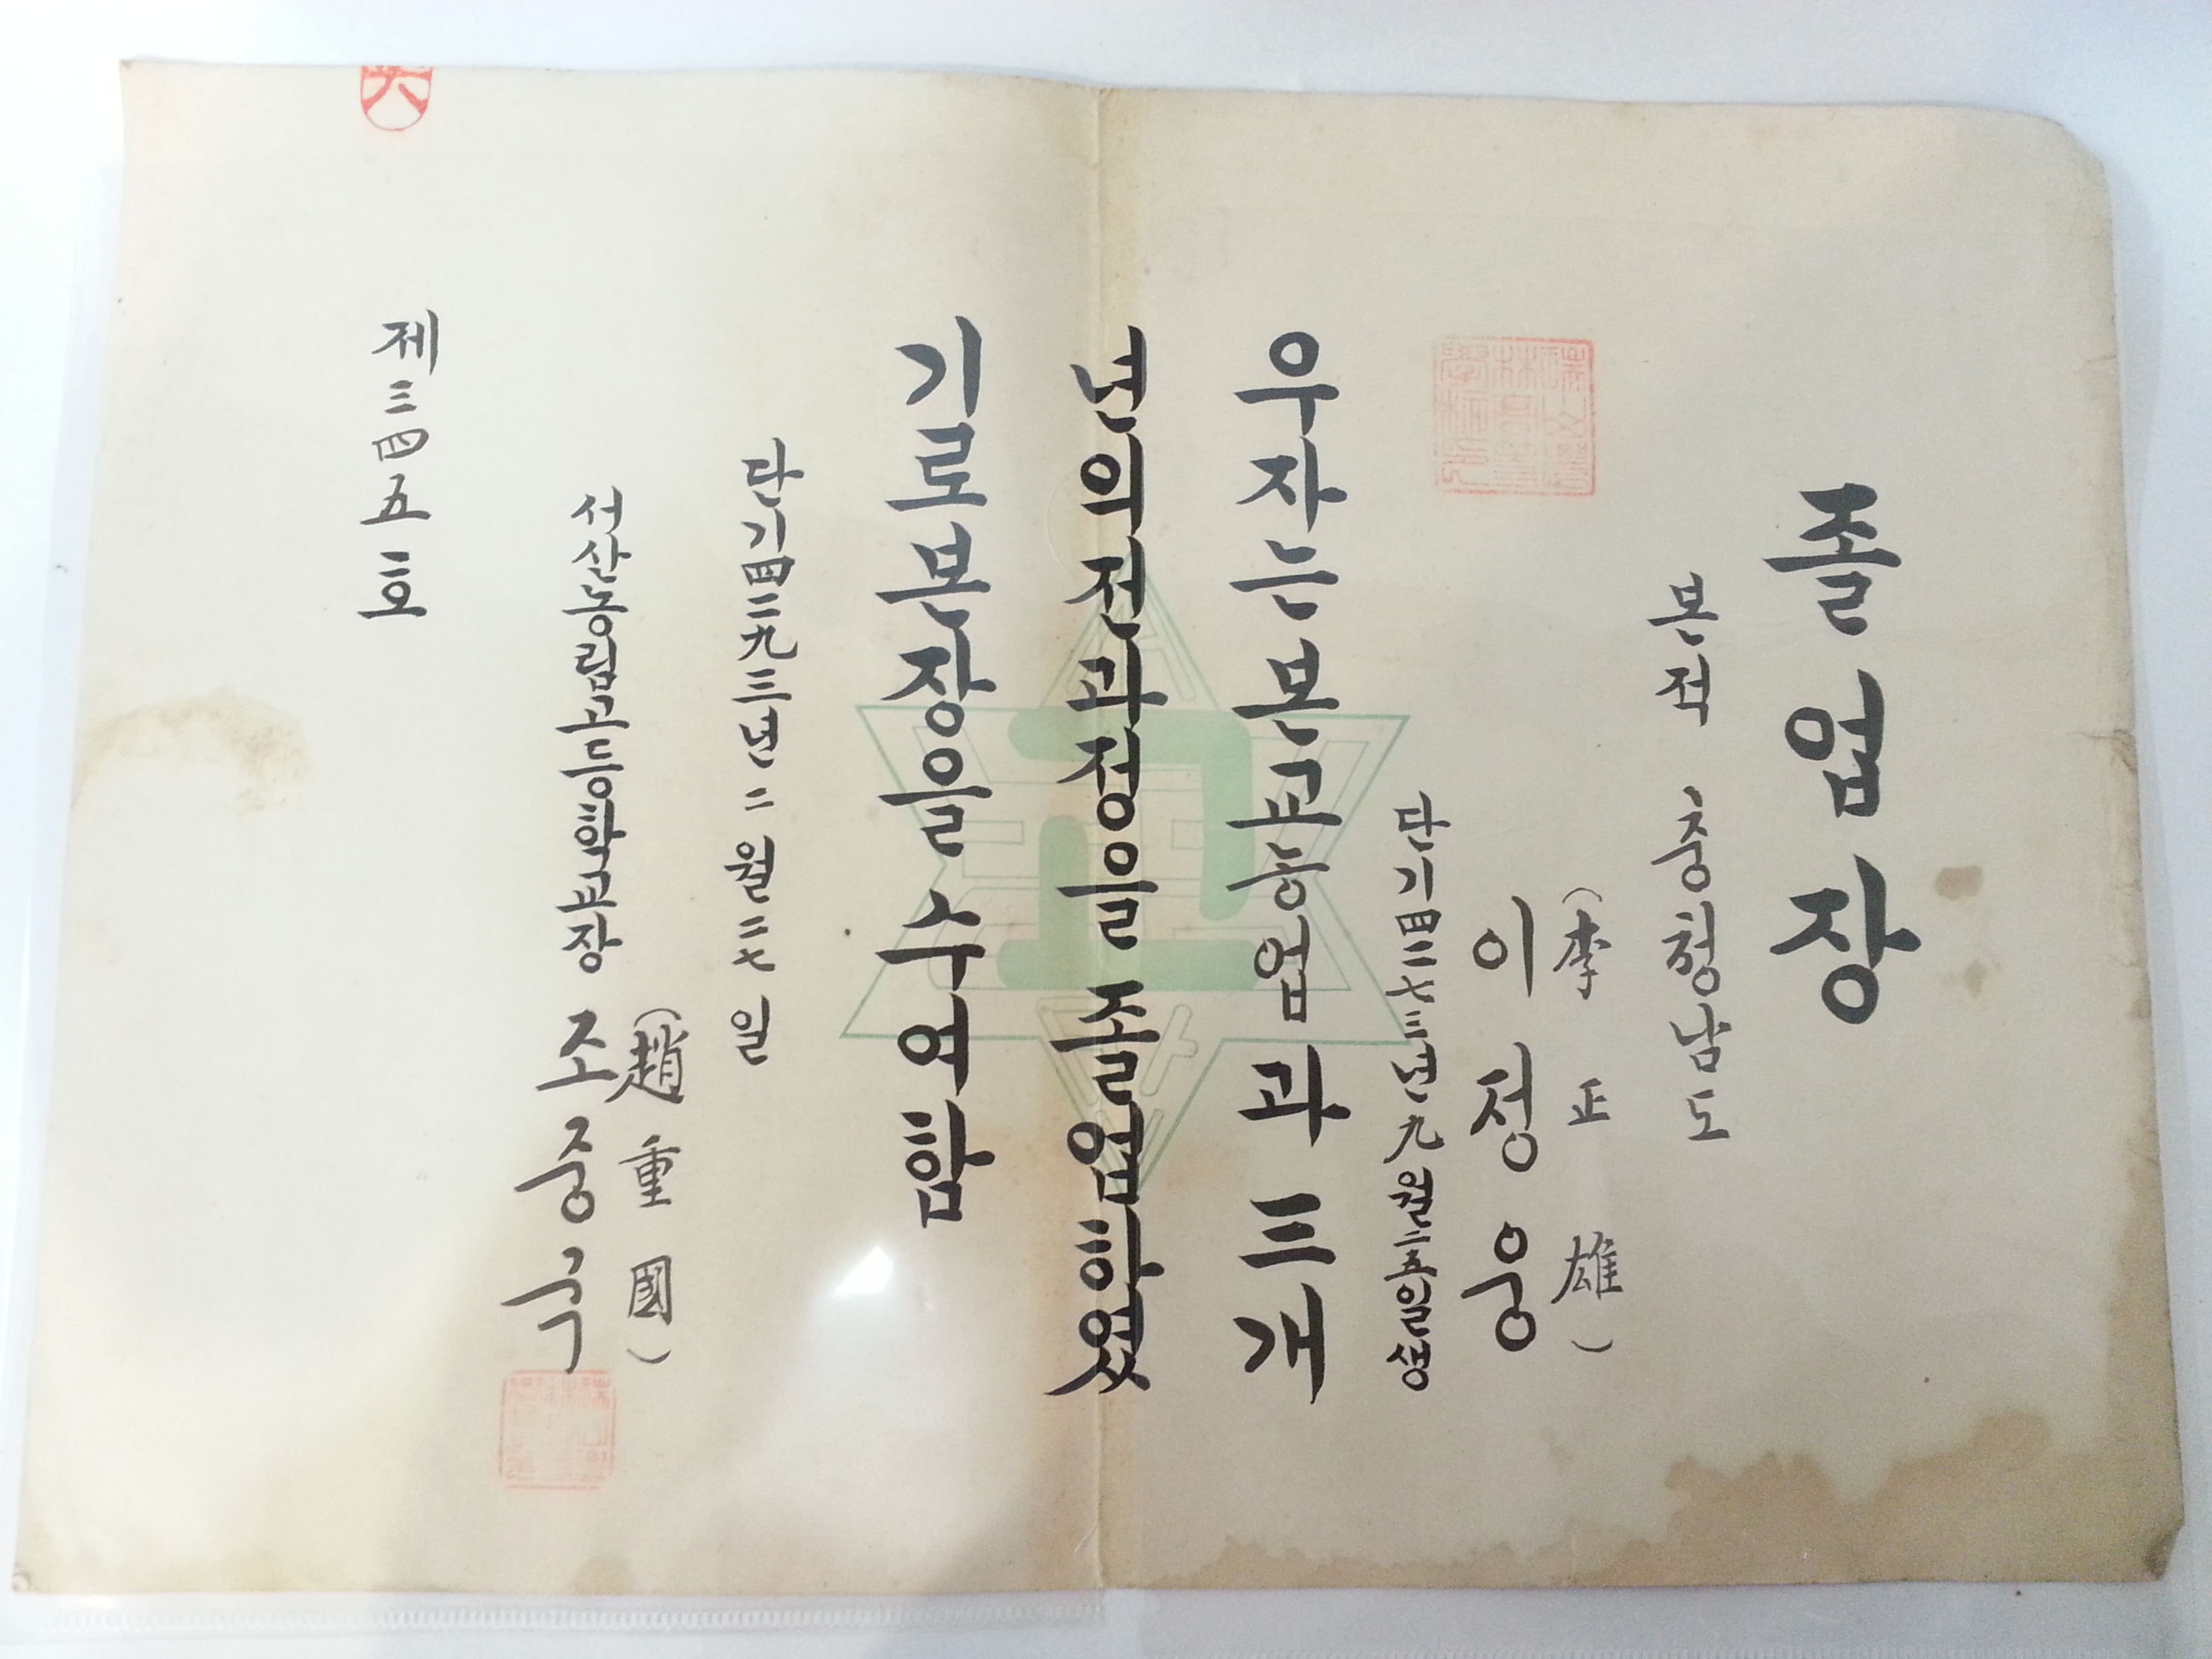 졸업장
본적 충청남도
(李正雄)
이정웅
단기四二七三년九월二五일생
우자는본교농업과三개
년의전과정을졸업하였
기로본장을수여함
단기四二九三년二월二七일
(趙重國)
서산농림고등학교장 조중국
제三四五호
고